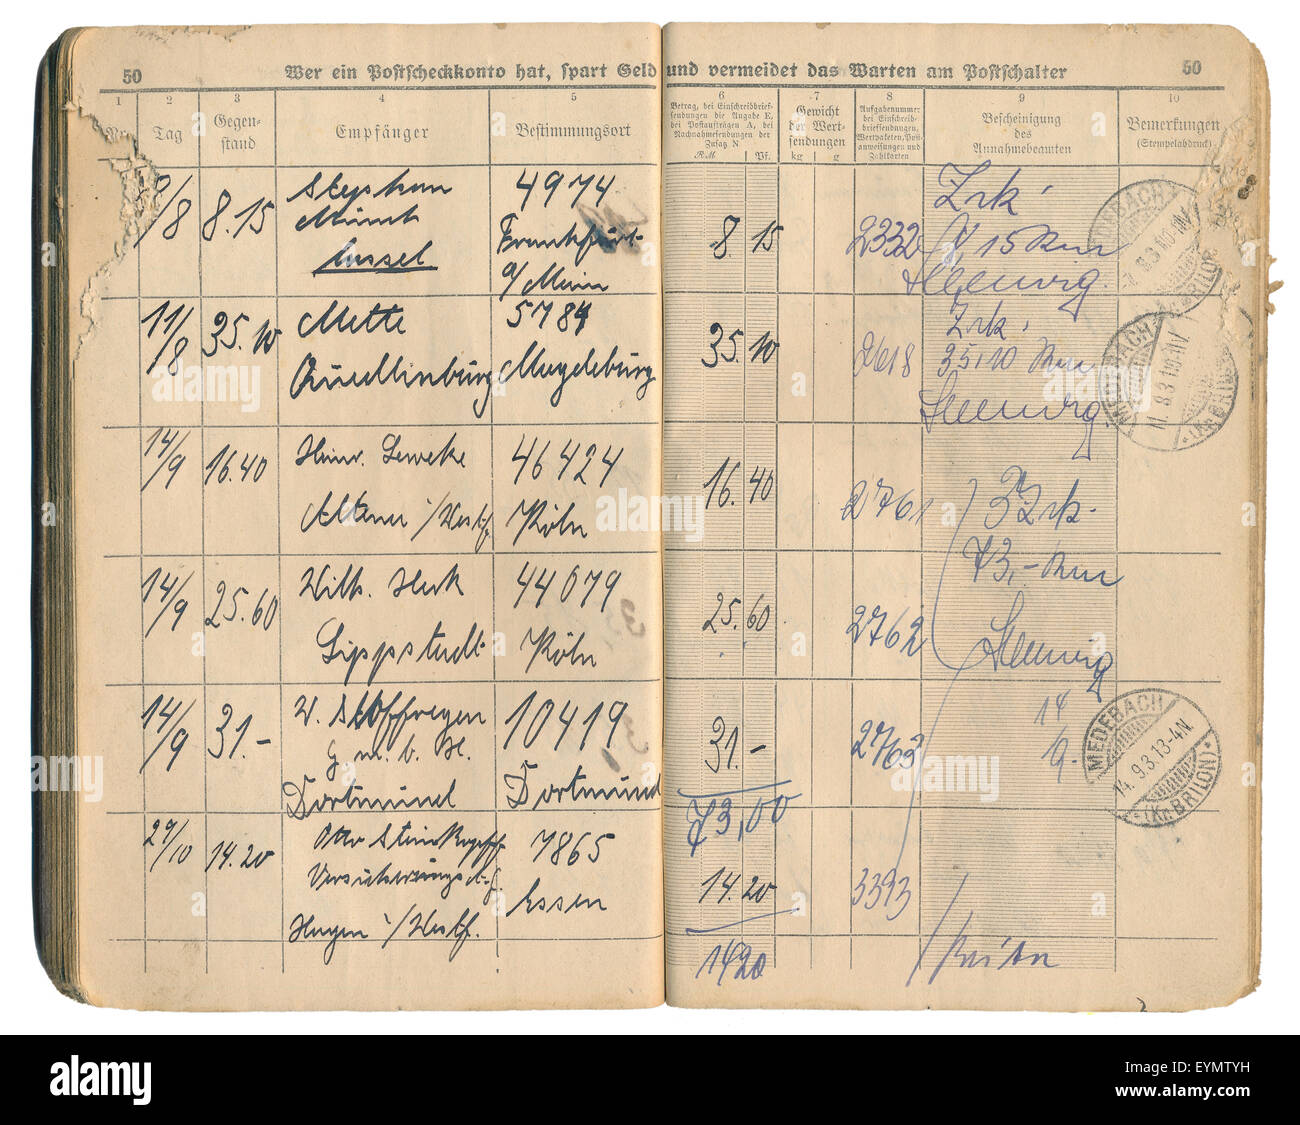 50
Wer ein Postscheckkonto hat, spart Geld und vermeidet das Warten am Postschalter
50
1 2 3 4 5 6 7 8 9 10
Tag
Gegen-
stand
Empfänger
Bestimmungsort
Betrag, bei Einschreibbrief-
sendungen die Angabe E,
bei Postaufträgen A, bei
Nachnahmesendungen der
Zusatz N
RM Pf.
Gewicht
der Wert-
sendungen
kg g
Aufgabenummer
bei Einschreib-
briefsendungen,
Wertpaketen, Post-
anweisungen und
Zahlkarten
Bescheinigung
des
Annahmebeamten
Bemerkungen
(Stempelabdruck)
/8 8.15
Stephan
Münch
Cassel
4974
Frankfurt
a/Main
8.15
2332
Zrk.
8,15 Rm
MEDEBACH
(Kr. BRILON)
11/8 35.10
Mette
Quedlinburg
5784
Magdeburg
35.10
2618
Zrk.
35,10 Rm
MEDEBACH
11.8.31
(Kr. BRILON)
14/9 16.40
Heinr.
Altena i/Westf.
46424
Köln
16.40
2761
3 Zrk.
73,- Rm
14/9 25.60
Wilh.
Lippstadt
44079
Köln
25.60
2762
14/9 31.-
W. Stoffregen
G.m.b.H.
Dortmund
10419
Dortmund
31.-
73,00
2763
14/9.
MEDEBACH
14.9.31.3-4N.
(Kr. BRILON)
29/10 14.20
Otto Steinkopff
Versicherungs A.G.
Hagen i/Westf.
7865
Essen
14.20
1420
3393
alamy
Image ID: EYMTYH
www.alamy.com